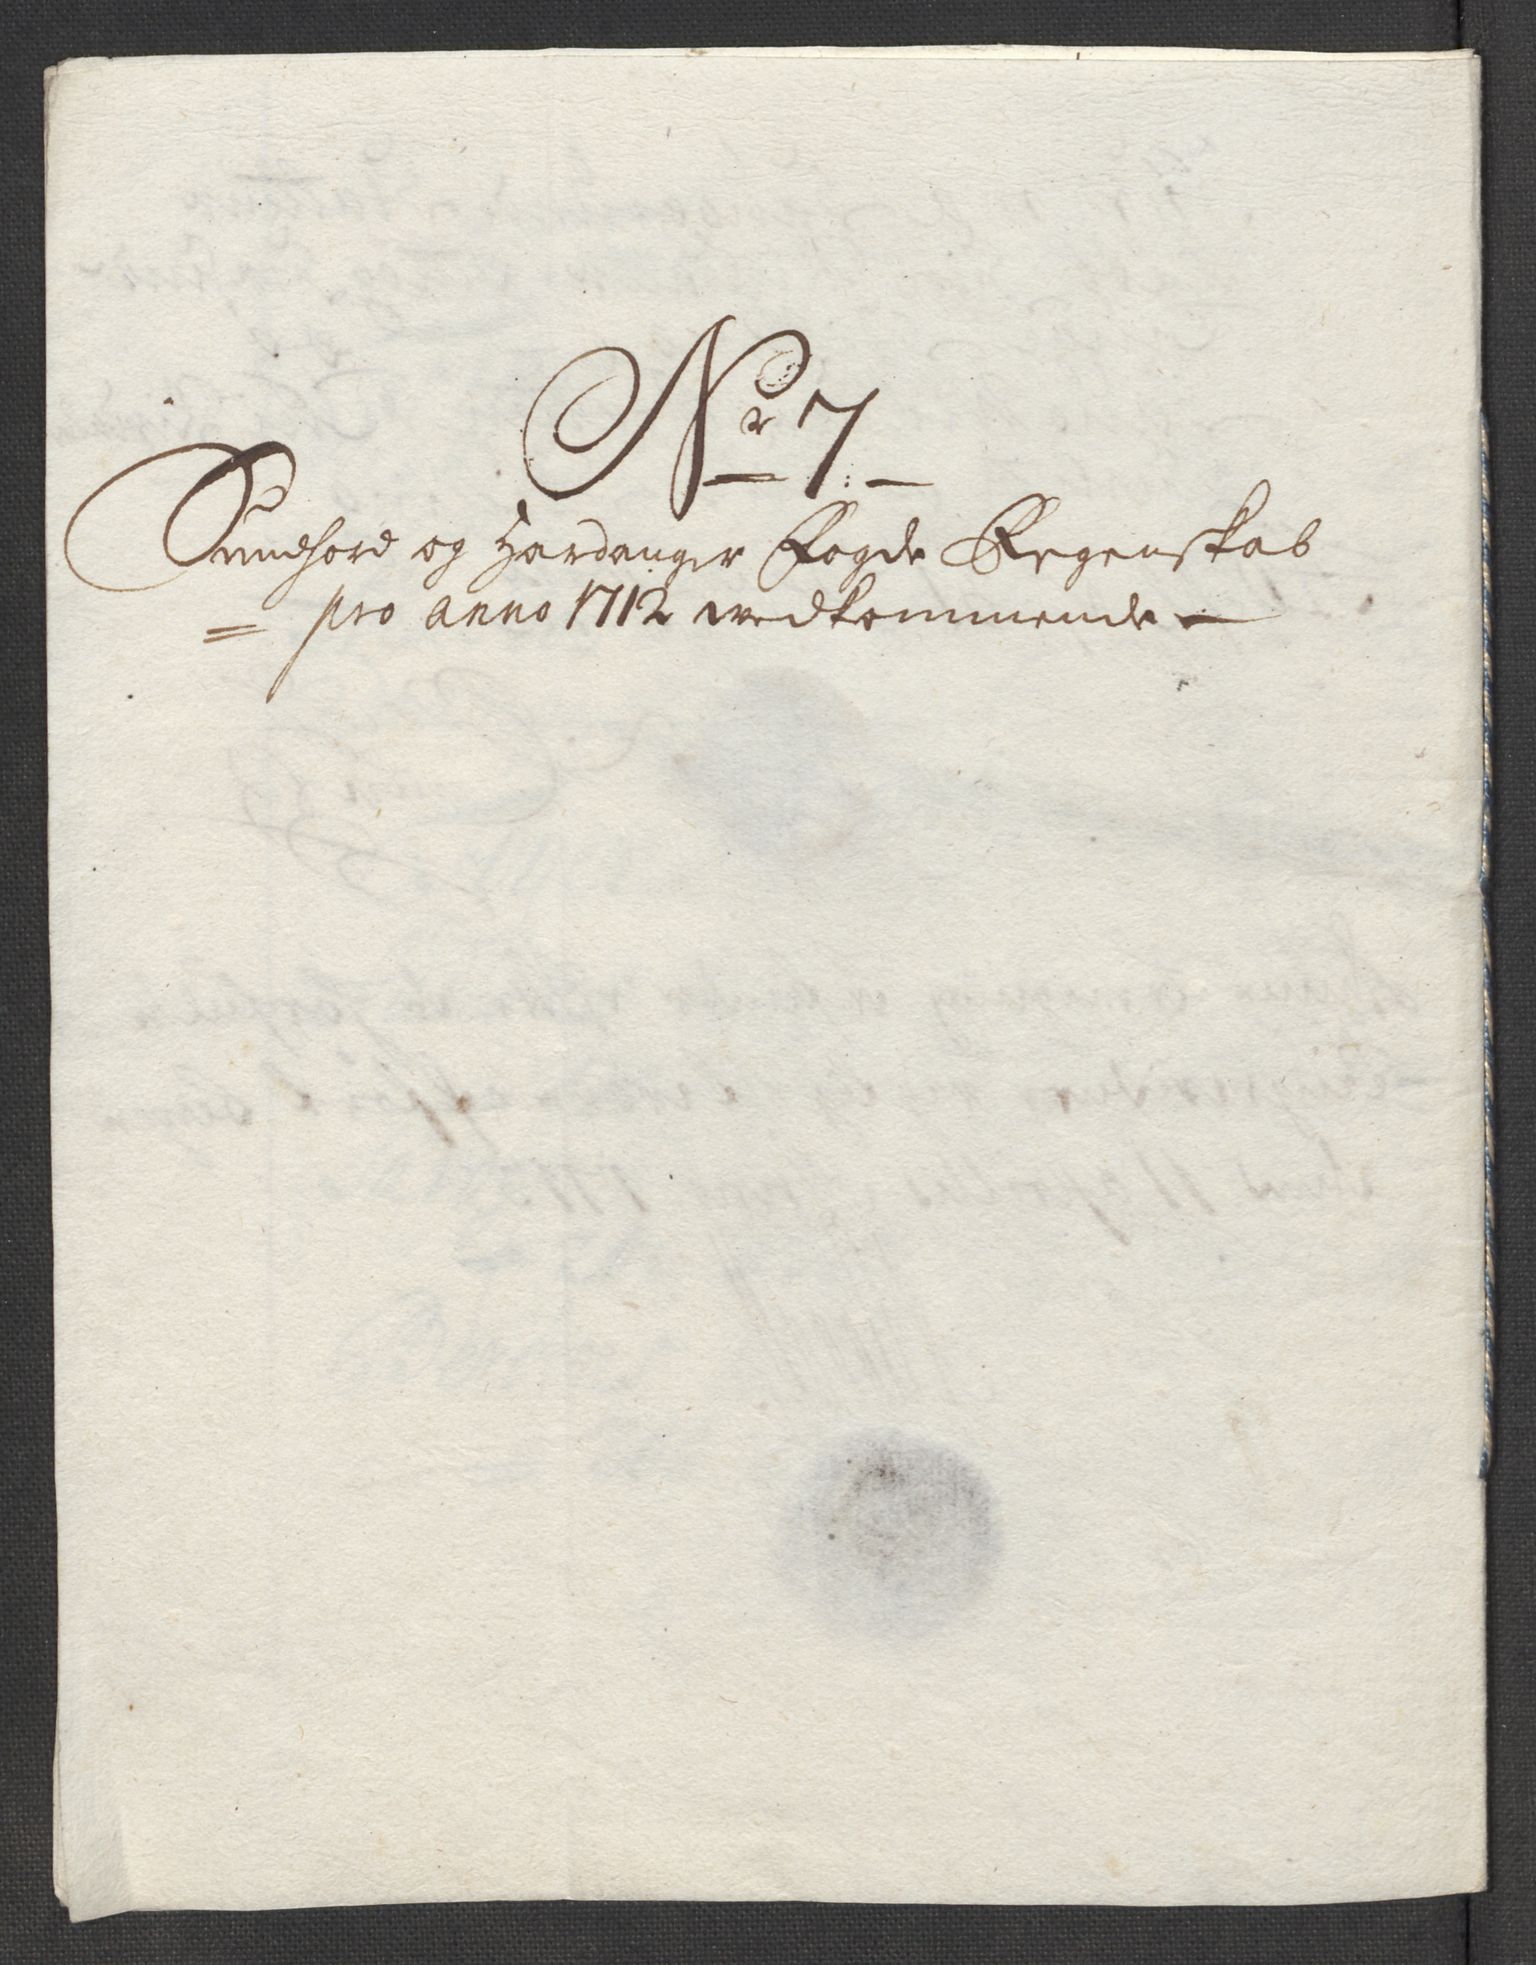 No 7
Sundhord og Hardanger Fogde Regenskab
pro anno 1712 vedkommende